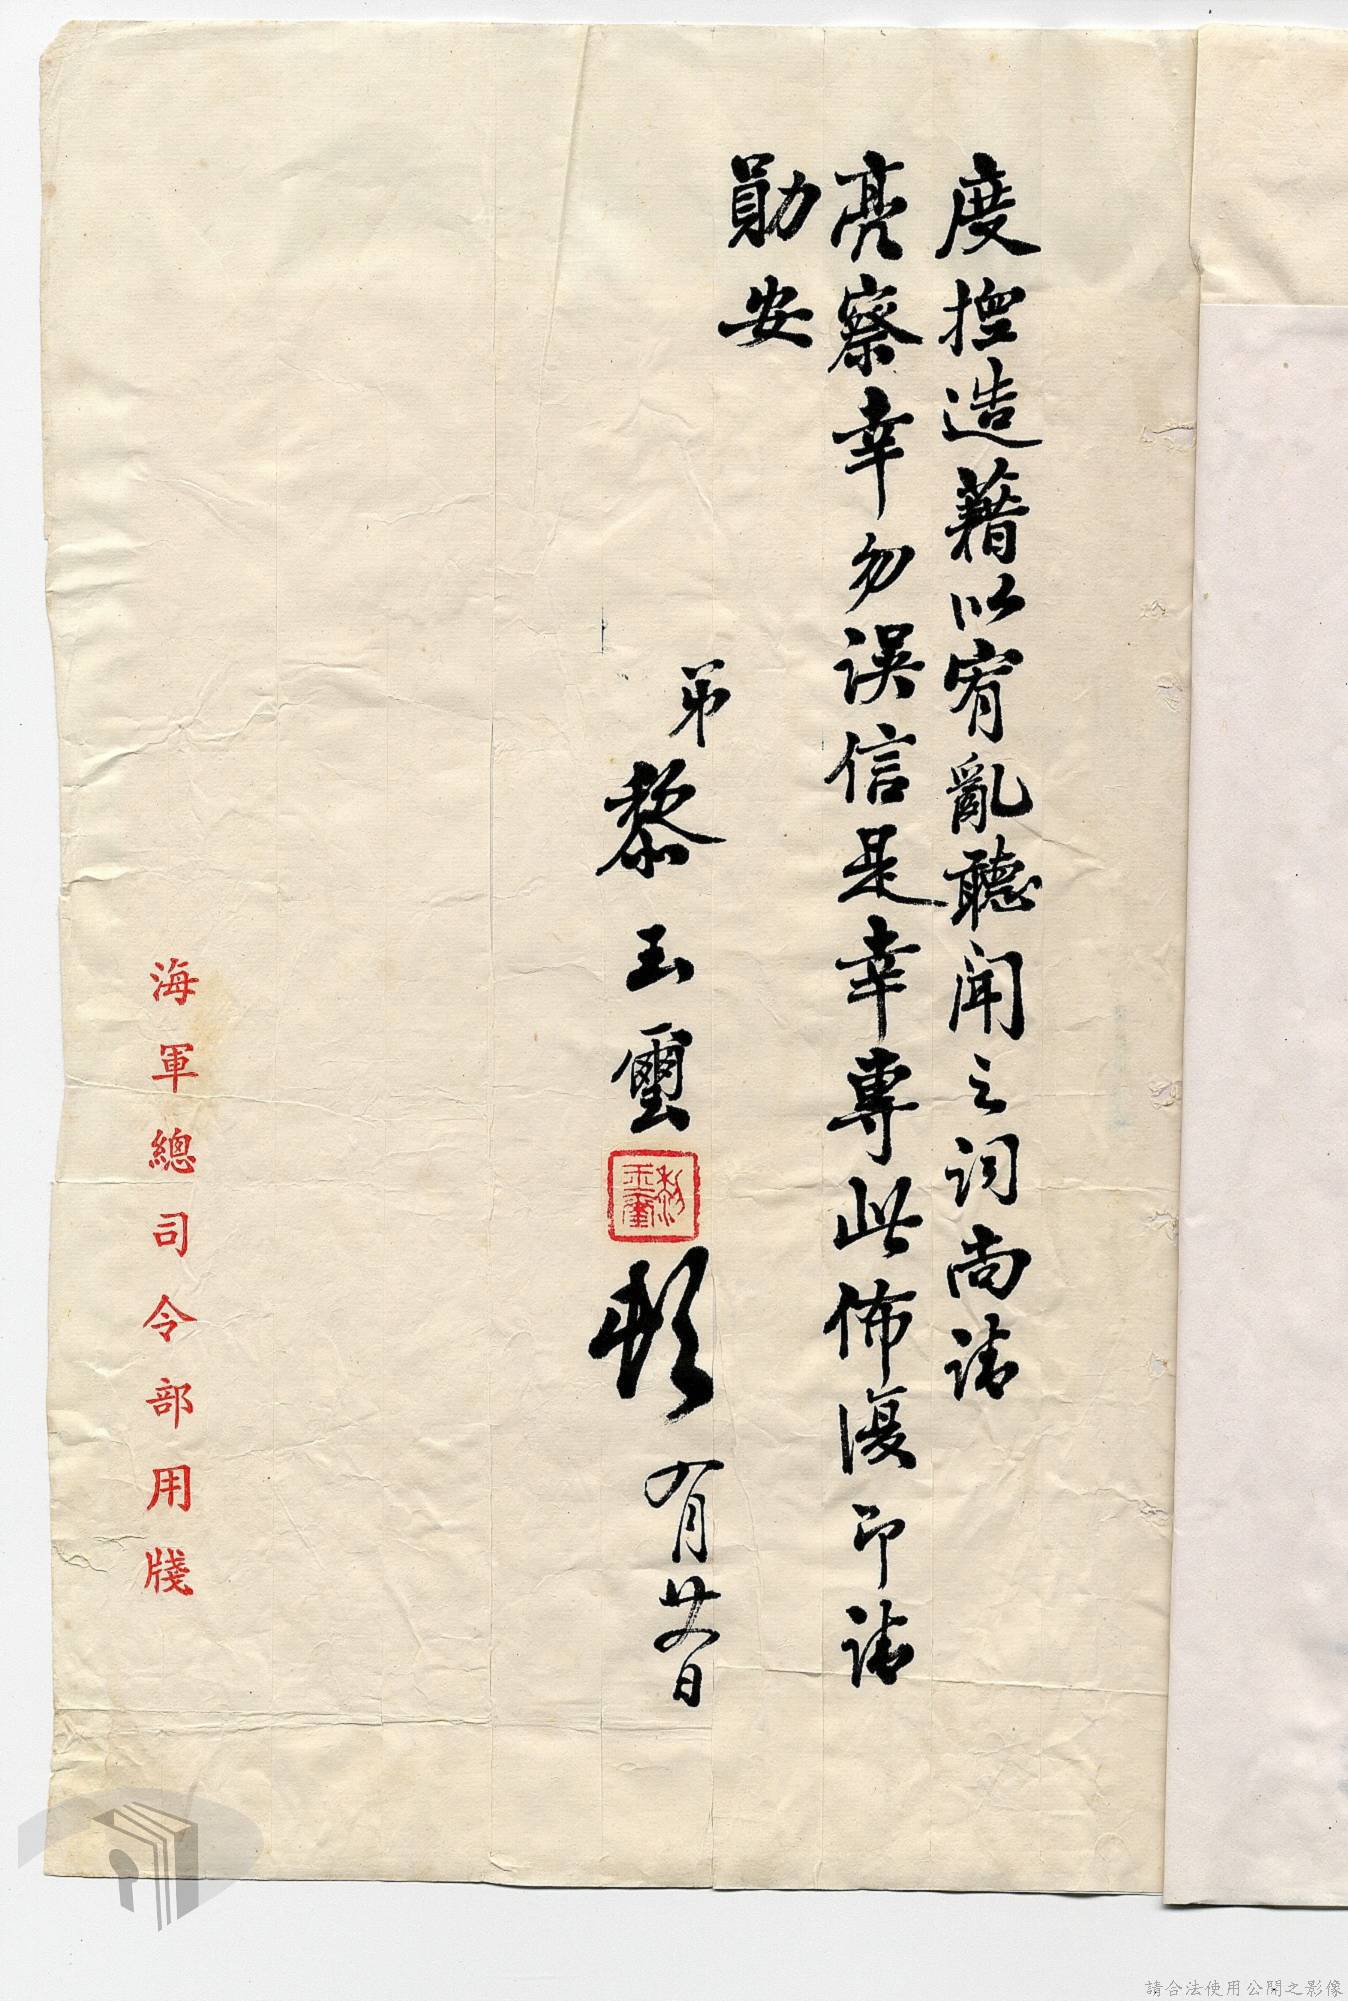 度控造藉以宥亂聽聞之詞尚請
亮察幸勿誤信是幸專此佈復即請
勛安
弟黎玉璽
黎玉璽
頓
八月廿八日
海軍總司令部用牋
請合法使用公開之影像